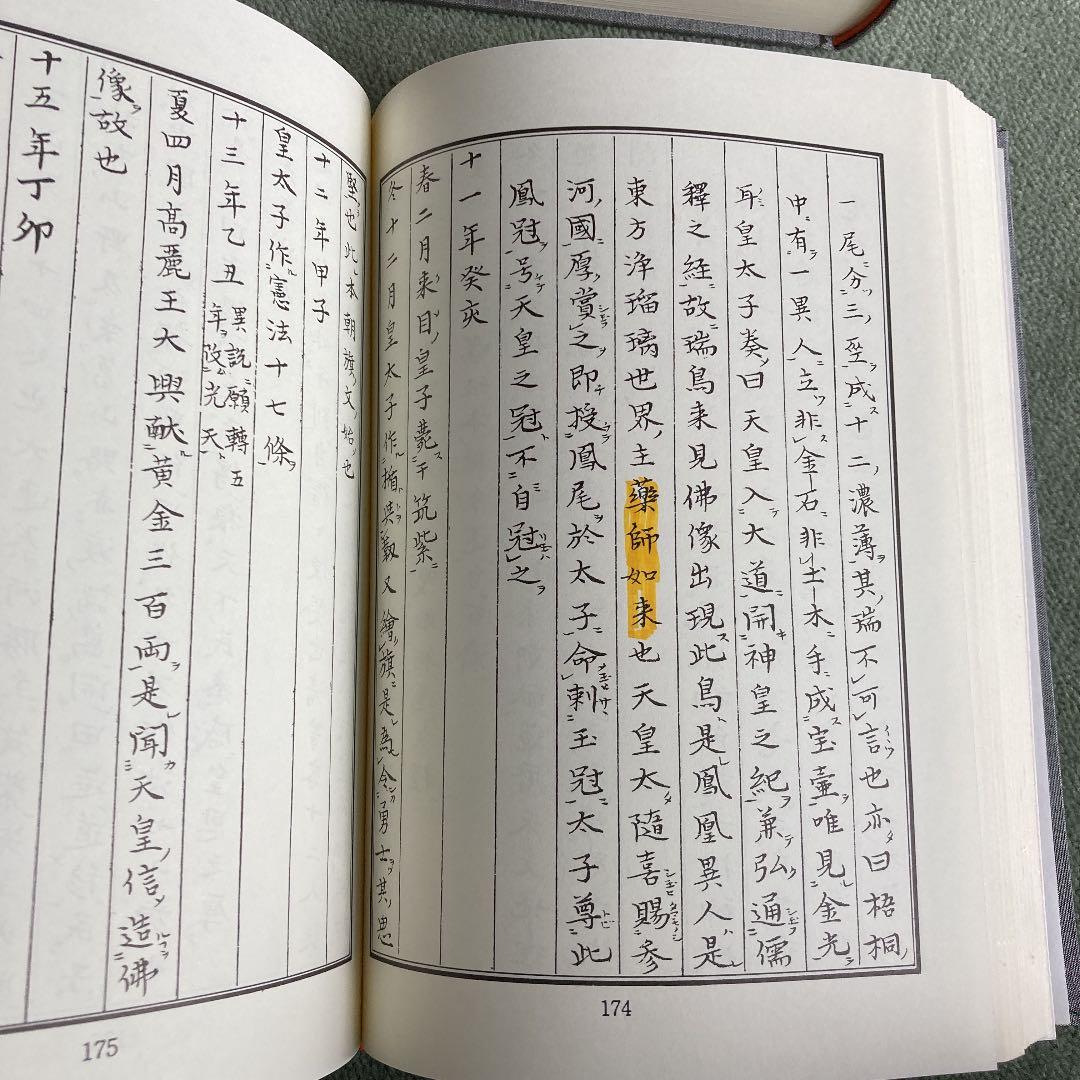 一尾分三巫成十二濃薄其瑞不可言也亦曰梧桐
中有一異人立非金石非土木手成宝壷唯見金光
耳皇太子奏曰天皇入大道開神皇之紀兼弘通儒
釋之経故瑞鳥来見佛像出現此鳥是鳳凰異人是
東方浄瑠璃世界主藥師如来也天皇太隨喜賜参
河國厚賞之即授鳳尾於太子命刺玉冠太子尊此
鳳冠号天皇之冠不自冠之
十一年癸亥
春二月来目皇子薨于筑紫
冬十二月皇太子作楯及靫又繪旗是為令勇士其思
堅也此本朝旗文始也
十二年甲子
皇太子作憲法十七條
十三年乙丑 異説願轉五
年改光天
夏四月高麗王大興献黄金三百両是聞天皇信造佛
像故也
十五年丁卯
174
175